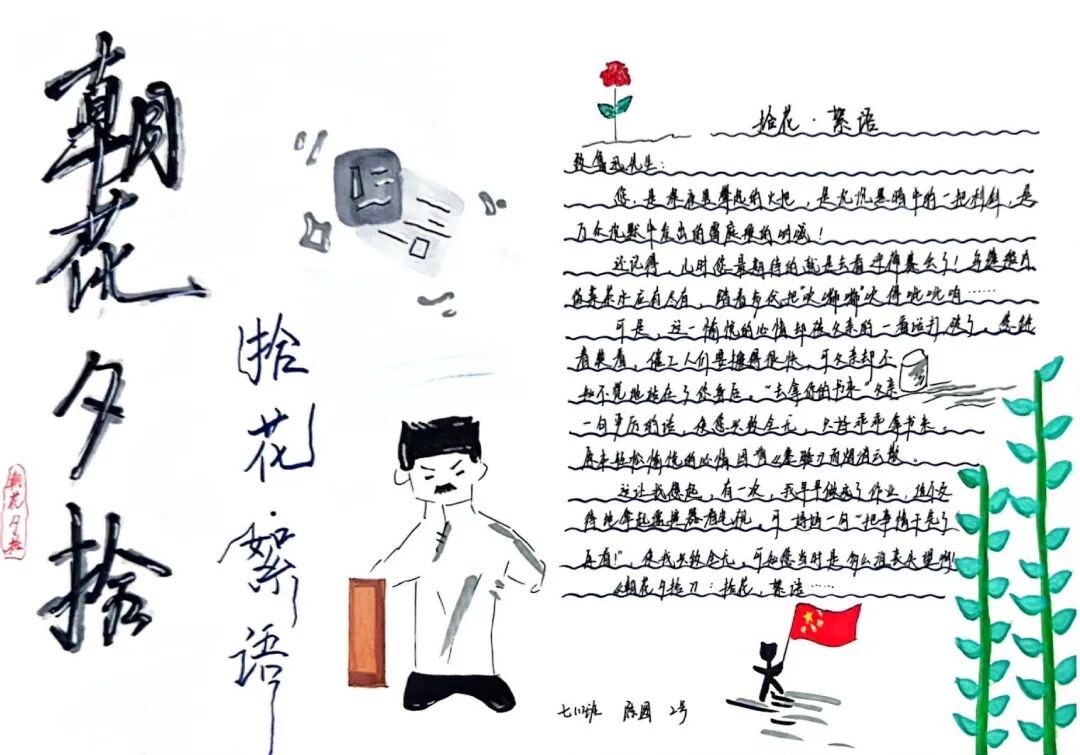 朝花夕拾
朝花夕拾
拾花絮语
拾花·絮语
致鲁迅先生:
您,是黑夜里擎起的火把,是尤沉黑暗中的一把利剑,是
万众沉默中发出的雷霆般的呐喊!
还记得,儿时您最期待的就是去看迎神赛会了!
应有尽有,踏着 把"吹嘟嘟"吹得吡吡响……
可是,这一愉悦的心情却被父亲的一番话打破了。您
着笑着,催工人们要搬得很快,可父亲却不
知不觉地站在了你身后。"去拿你的书来"父亲
一句严厉的话,使您兴致全无,只好乖乖拿书来。
原本轻松愉悦的心情因背《鉴略》而烟消云散。
这让我想起,有一次,我早早做完了作业,迫不及
待地拿起遥控器看电视。可妈妈一句"把事情干完了
再看!",使我兴致全无,可知您当时是有么沮丧失望啊!
《朝花夕拾》:拾花,絮语……
2号